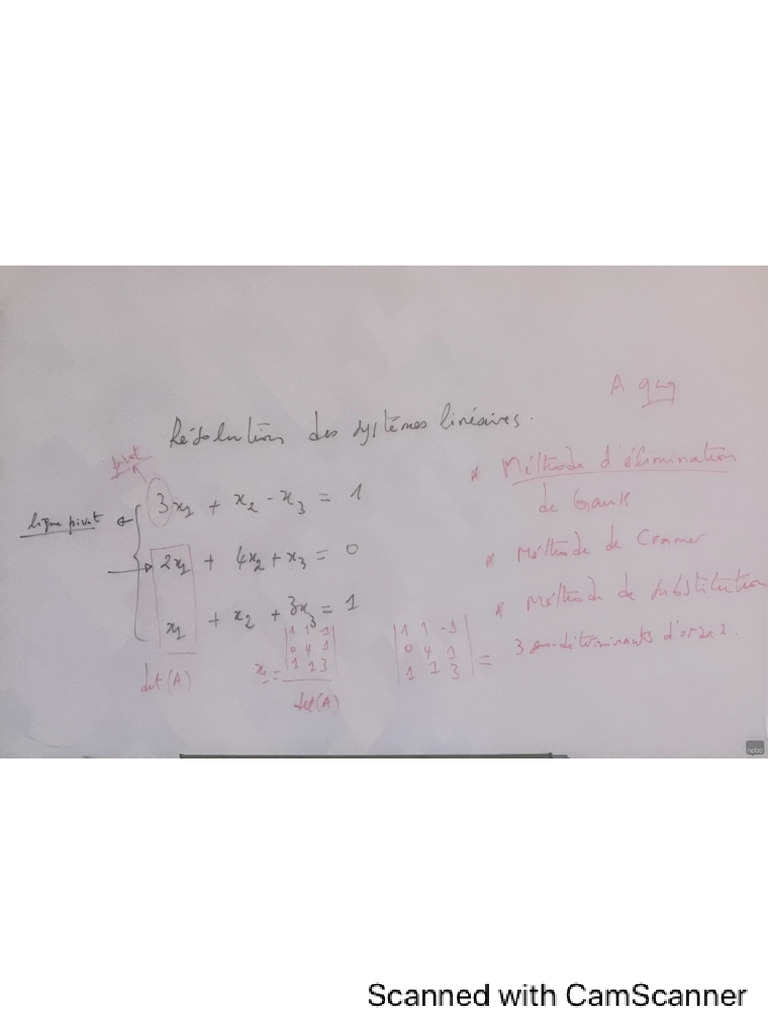 Résolution des systèmes linéaires.
pivot
ligne pivot
3x₁ + x₂ - x₃ = 1
2x₁ + 4x₂ + x₃ = 0
x₁ + x₂ + 3x₃ = 1
det(A)
x₁ = |1 1 -1|
|0 4 1|
|1 1 3|
det(A)
|1 1 -1|
|0 4 1|
|1 1 3| =
3 sous-déterminants d'ordre 2.
A
* Méthode d'élimination
de Gauss
* Méthode de Crammer
* Méthode de substitution
nebo
Scanned with CamScanner